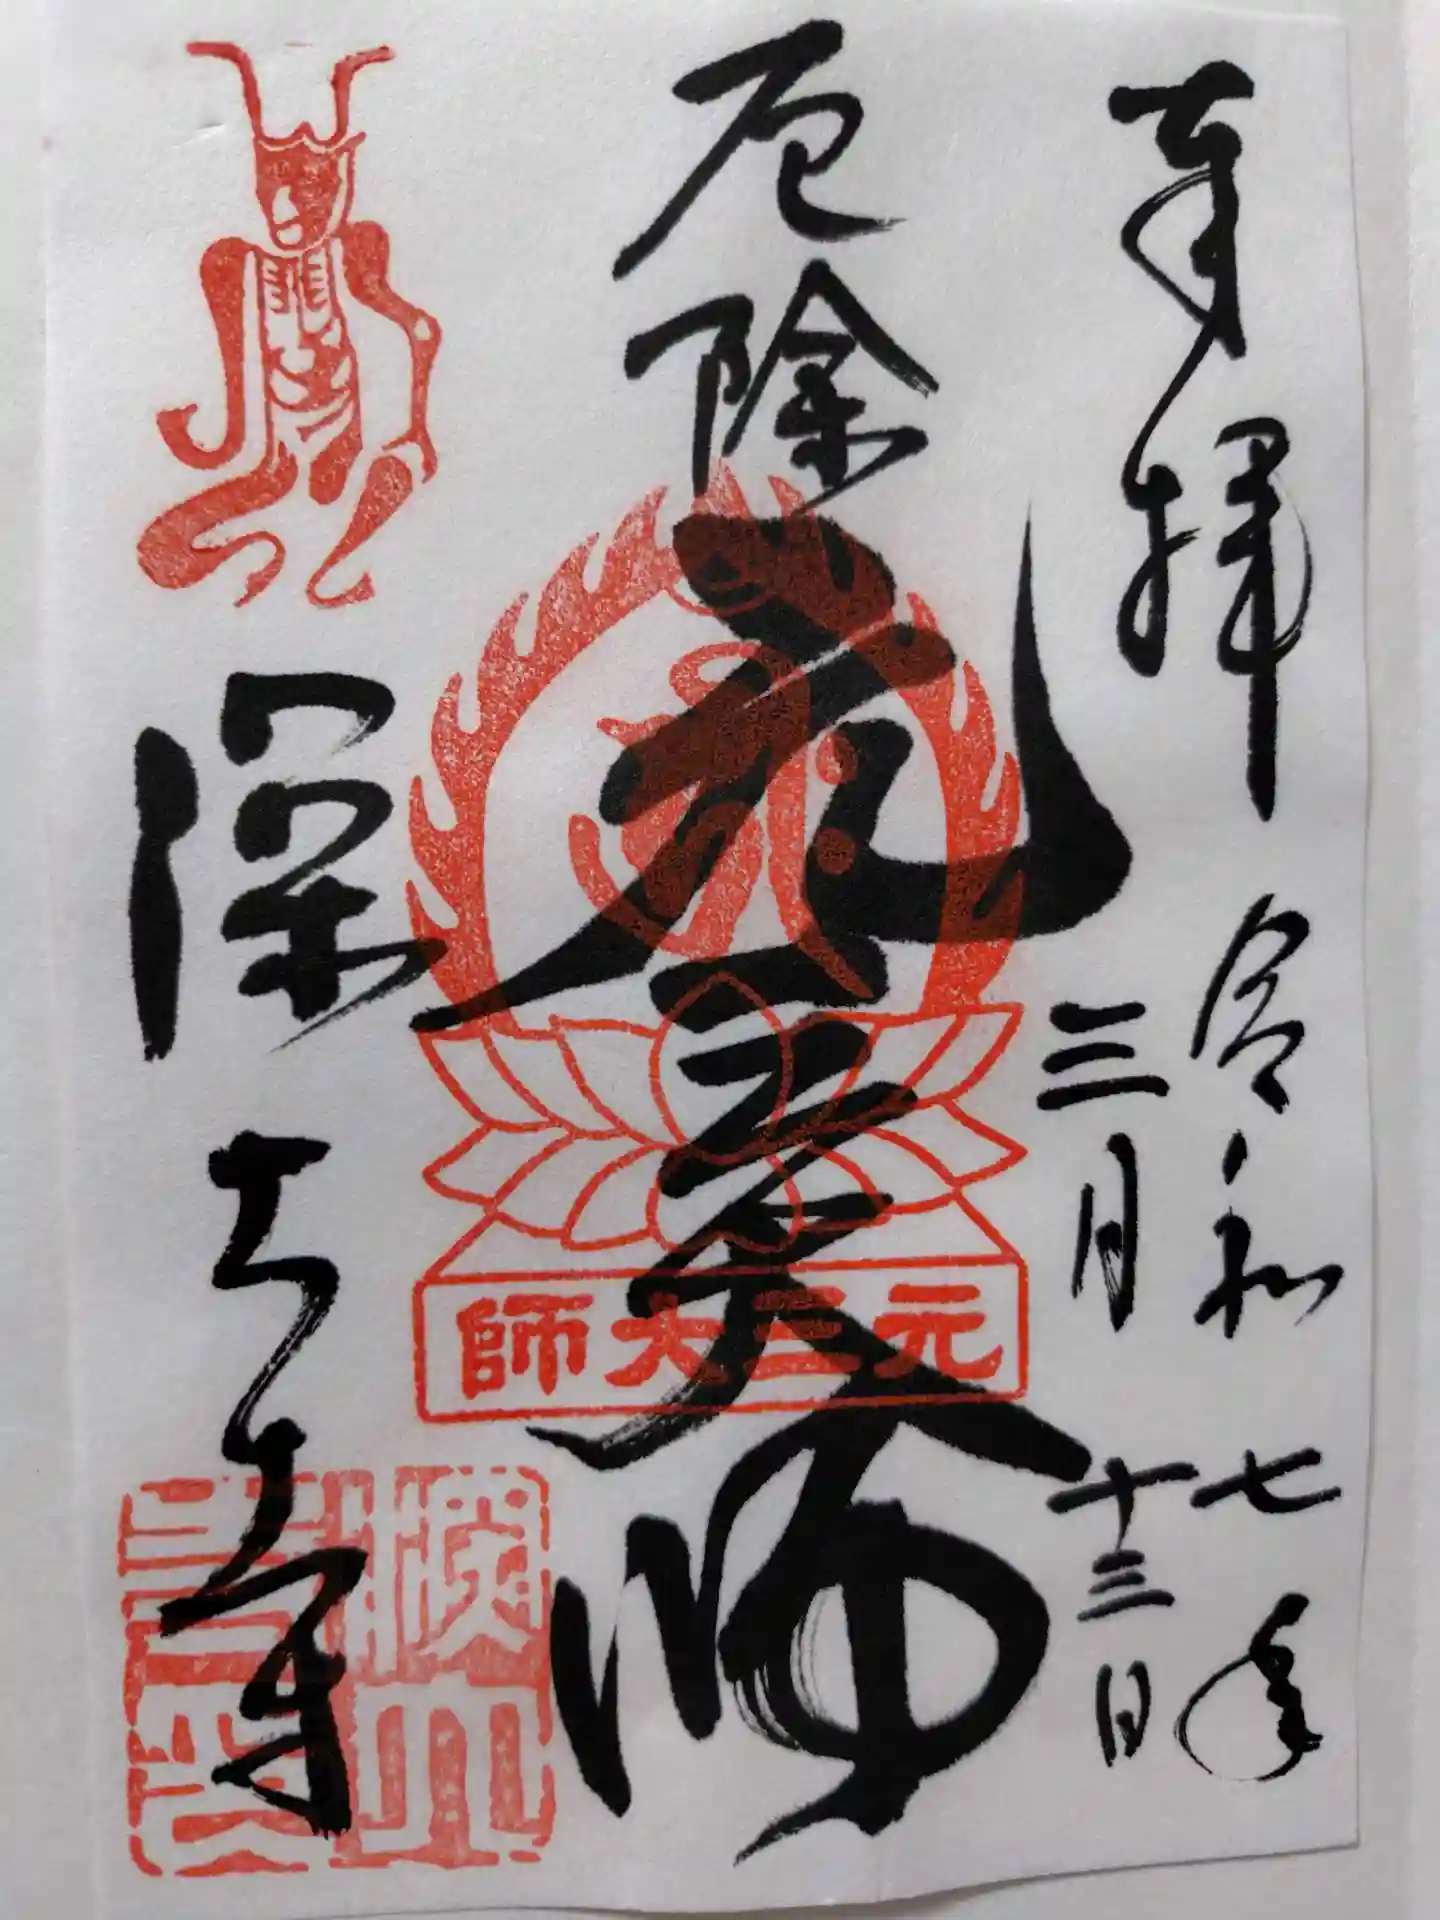 奉拝
令和七年
三月十三日
厄除
元三大師
師大三元
深大寺